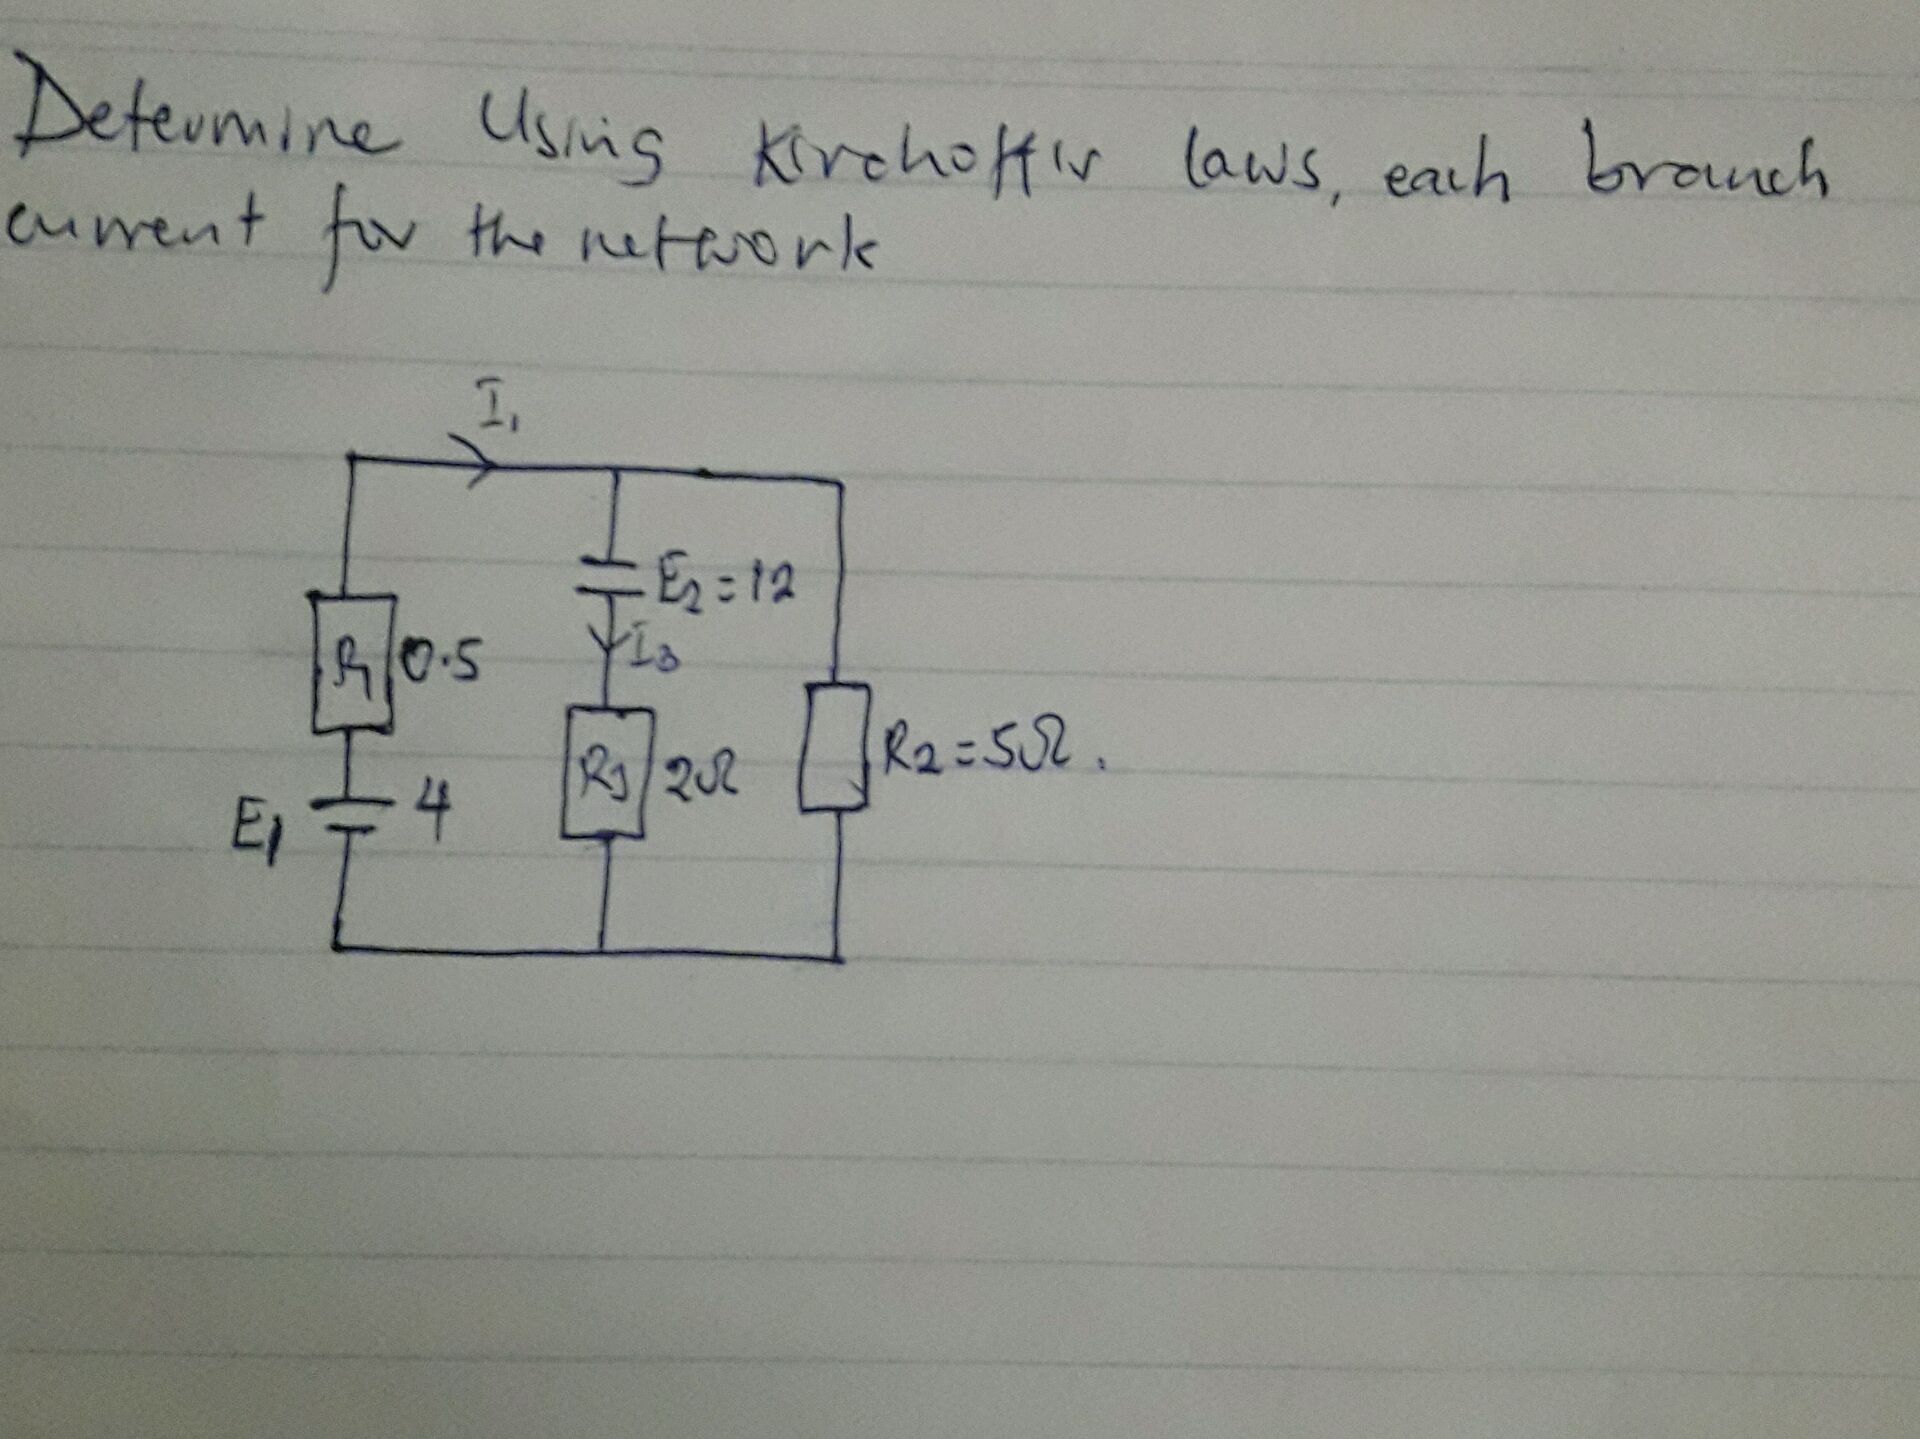 Determine Using Kirchoff's laws, each branch
current for the network
I₁
E₂ = 12
I₃
R₁ 0.5
R₃ 2Ω
R₂ = 5Ω.
E₁ 4